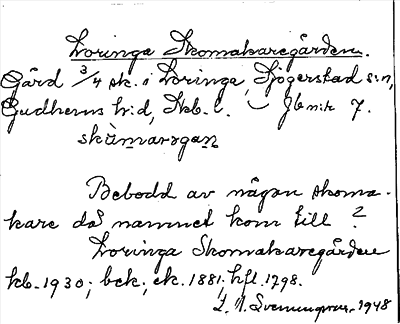 Loringa Skomakaregården.
Gård 3/4 sk. i Loringa, Sjögerstad s:n,
Gudhems h:d, Skb. l. Jb nr 7.
skùmarsgan
Bebodd av någon skoma-
kare då namnet kom till?
Loringa Skomakaregården
kb. 1930; bek. ek. 1881; hfl. 1798.
1948